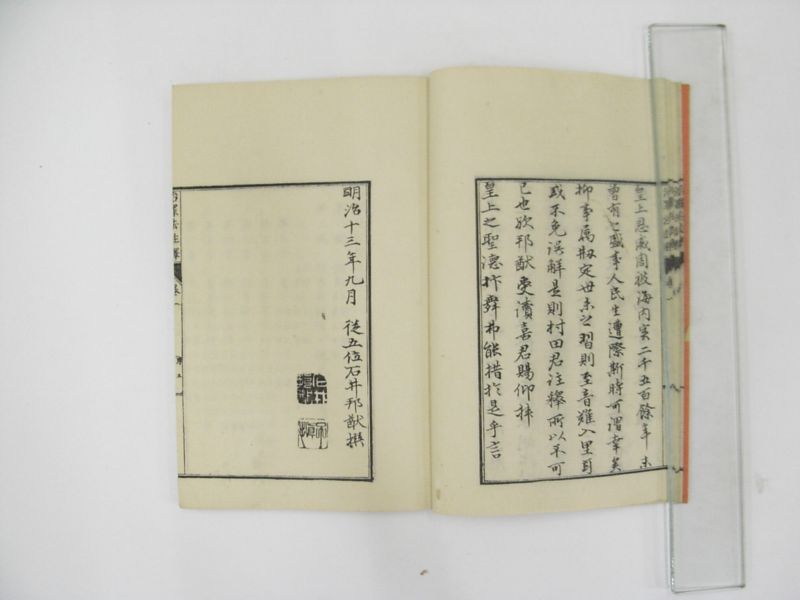 皇上恩威周被海内実二千五百餘年未
曽有之盛事人民生遭際斯時可謂幸矣
抑事属剏定世未之習則至音難入里耳
或不免誤解是則村田君注釋所以不可
已也欤邦猷受讀嘉君賜仰拝
皇上之聖德抃舞弗能措於是乎言
明治十三年九月 従五位石井邦猷撰